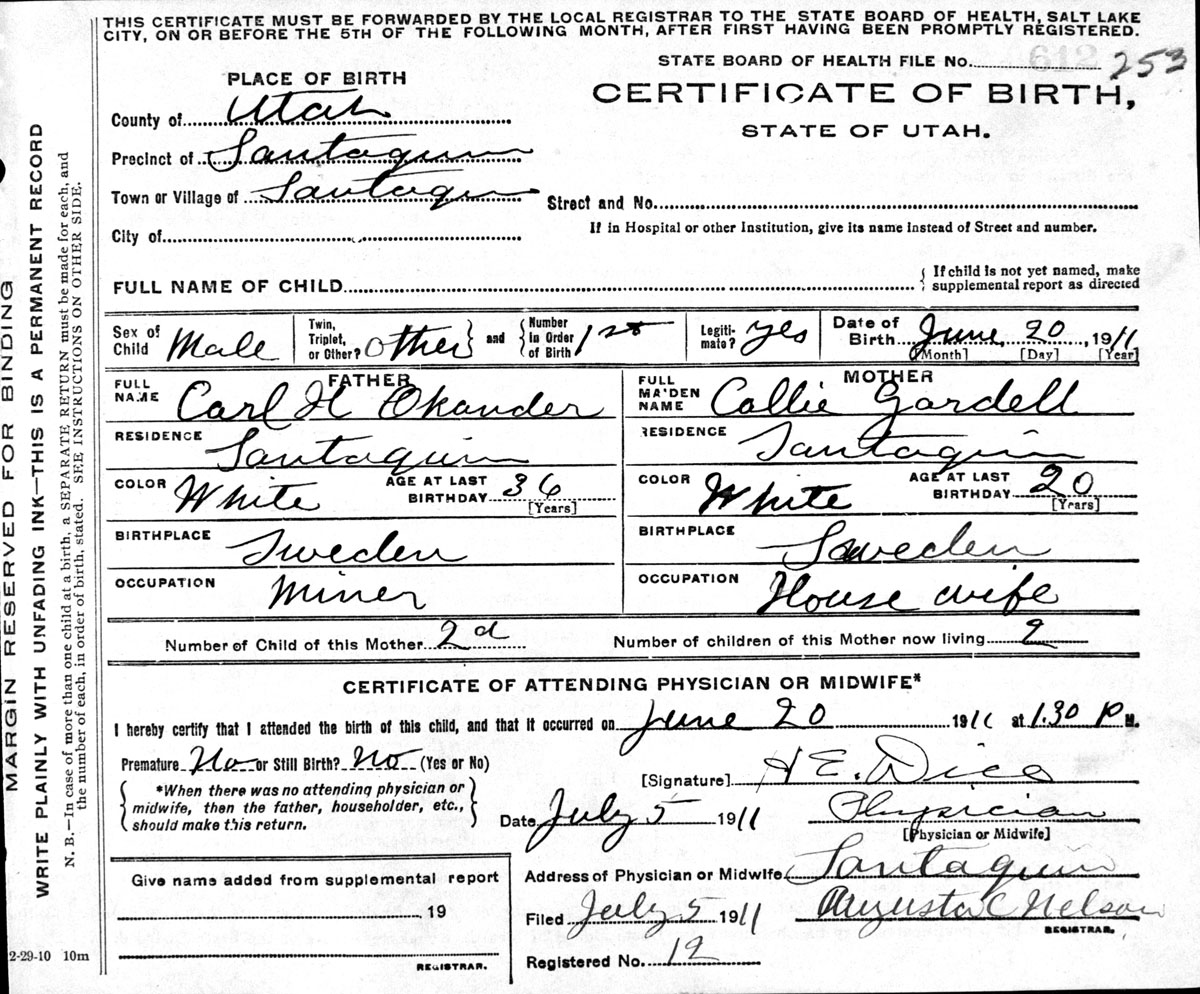 THIS CERTIFICATE MUST BE FORWARDED BY THE LOCAL REGISTRAR TO THE STATE BOARD OF HEALTH, SALT LAKE
CITY, ON OR BEFORE THE 5TH OF THE FOLLOWING MONTH, AFTER FIRST HAVING BEEN PROMPTLY REGISTERED.
STATE BOARD OF HEALTH FILE No. 612 253
PLACE OF BIRTH
CERTIFICATE OF BIRTH,
STATE OF UTAH.
County of Utah
Precinct of Santaquin
Town or Village of Santaquin
Street and No.
City of
If in Hospital or other Institution, give its name instead of Street and number.
FULL NAME OF CHILD { If child is not yet named, make
supplemental report as directed
Sex of Child Male Twin, Triplet, or Other? Other } and { Number in Order of Birth 1st Legiti- mate? yes Date of Birth June 20, 1911
[Month] [Day] [Year]
FATHER
FULL NAME Carl H Okander
RESIDENCE Santaquin
COLOR White AGE AT LAST BIRTHDAY 36
[Years]
BIRTHPLACE Sweden
OCCUPATION Miner
MOTHER
FULL MAIDEN NAME Collie Gardell
RESIDENCE Santaquin
COLOR White AGE AT LAST BIRTHDAY 20
[Years]
BIRTHPLACE Sweden
OCCUPATION House wife
Number of Child of this Mother 2d Number of children of this Mother now living 2
CERTIFICATE OF ATTENDING PHYSICIAN OR MIDWIFE*
I hereby certify that I attended the birth of this child, and that it occurred on June 20 1911 at 1.30 P M.
Premature No or Still Birth? No (Yes or No)
[Signature] H E. Dice
*When there was no attending physician or
midwife, then the father, householder, etc.,
should make this return.
Date July 5 1911 Physician
[Physician or Midwife]
Address of Physician or Midwife Santaquin
Filed July 5 1911 Augusta C Nelson
REGISTRAR.
Registered No. 12
Give name added from supplemental report
, 19
REGISTRAR.
2-29-10 10m
MARGIN RESERVED FOR BINDING
WRITE PLAINLY WITH UNFADING INK—THIS IS A PERMANENT RECORD
N. B.—In case of more than one child at a birth, a SEPARATE RETURN must be made for each, and
the number of each, in order of birth, stated. SEE INSTRUCTIONS ON OTHER SIDE.